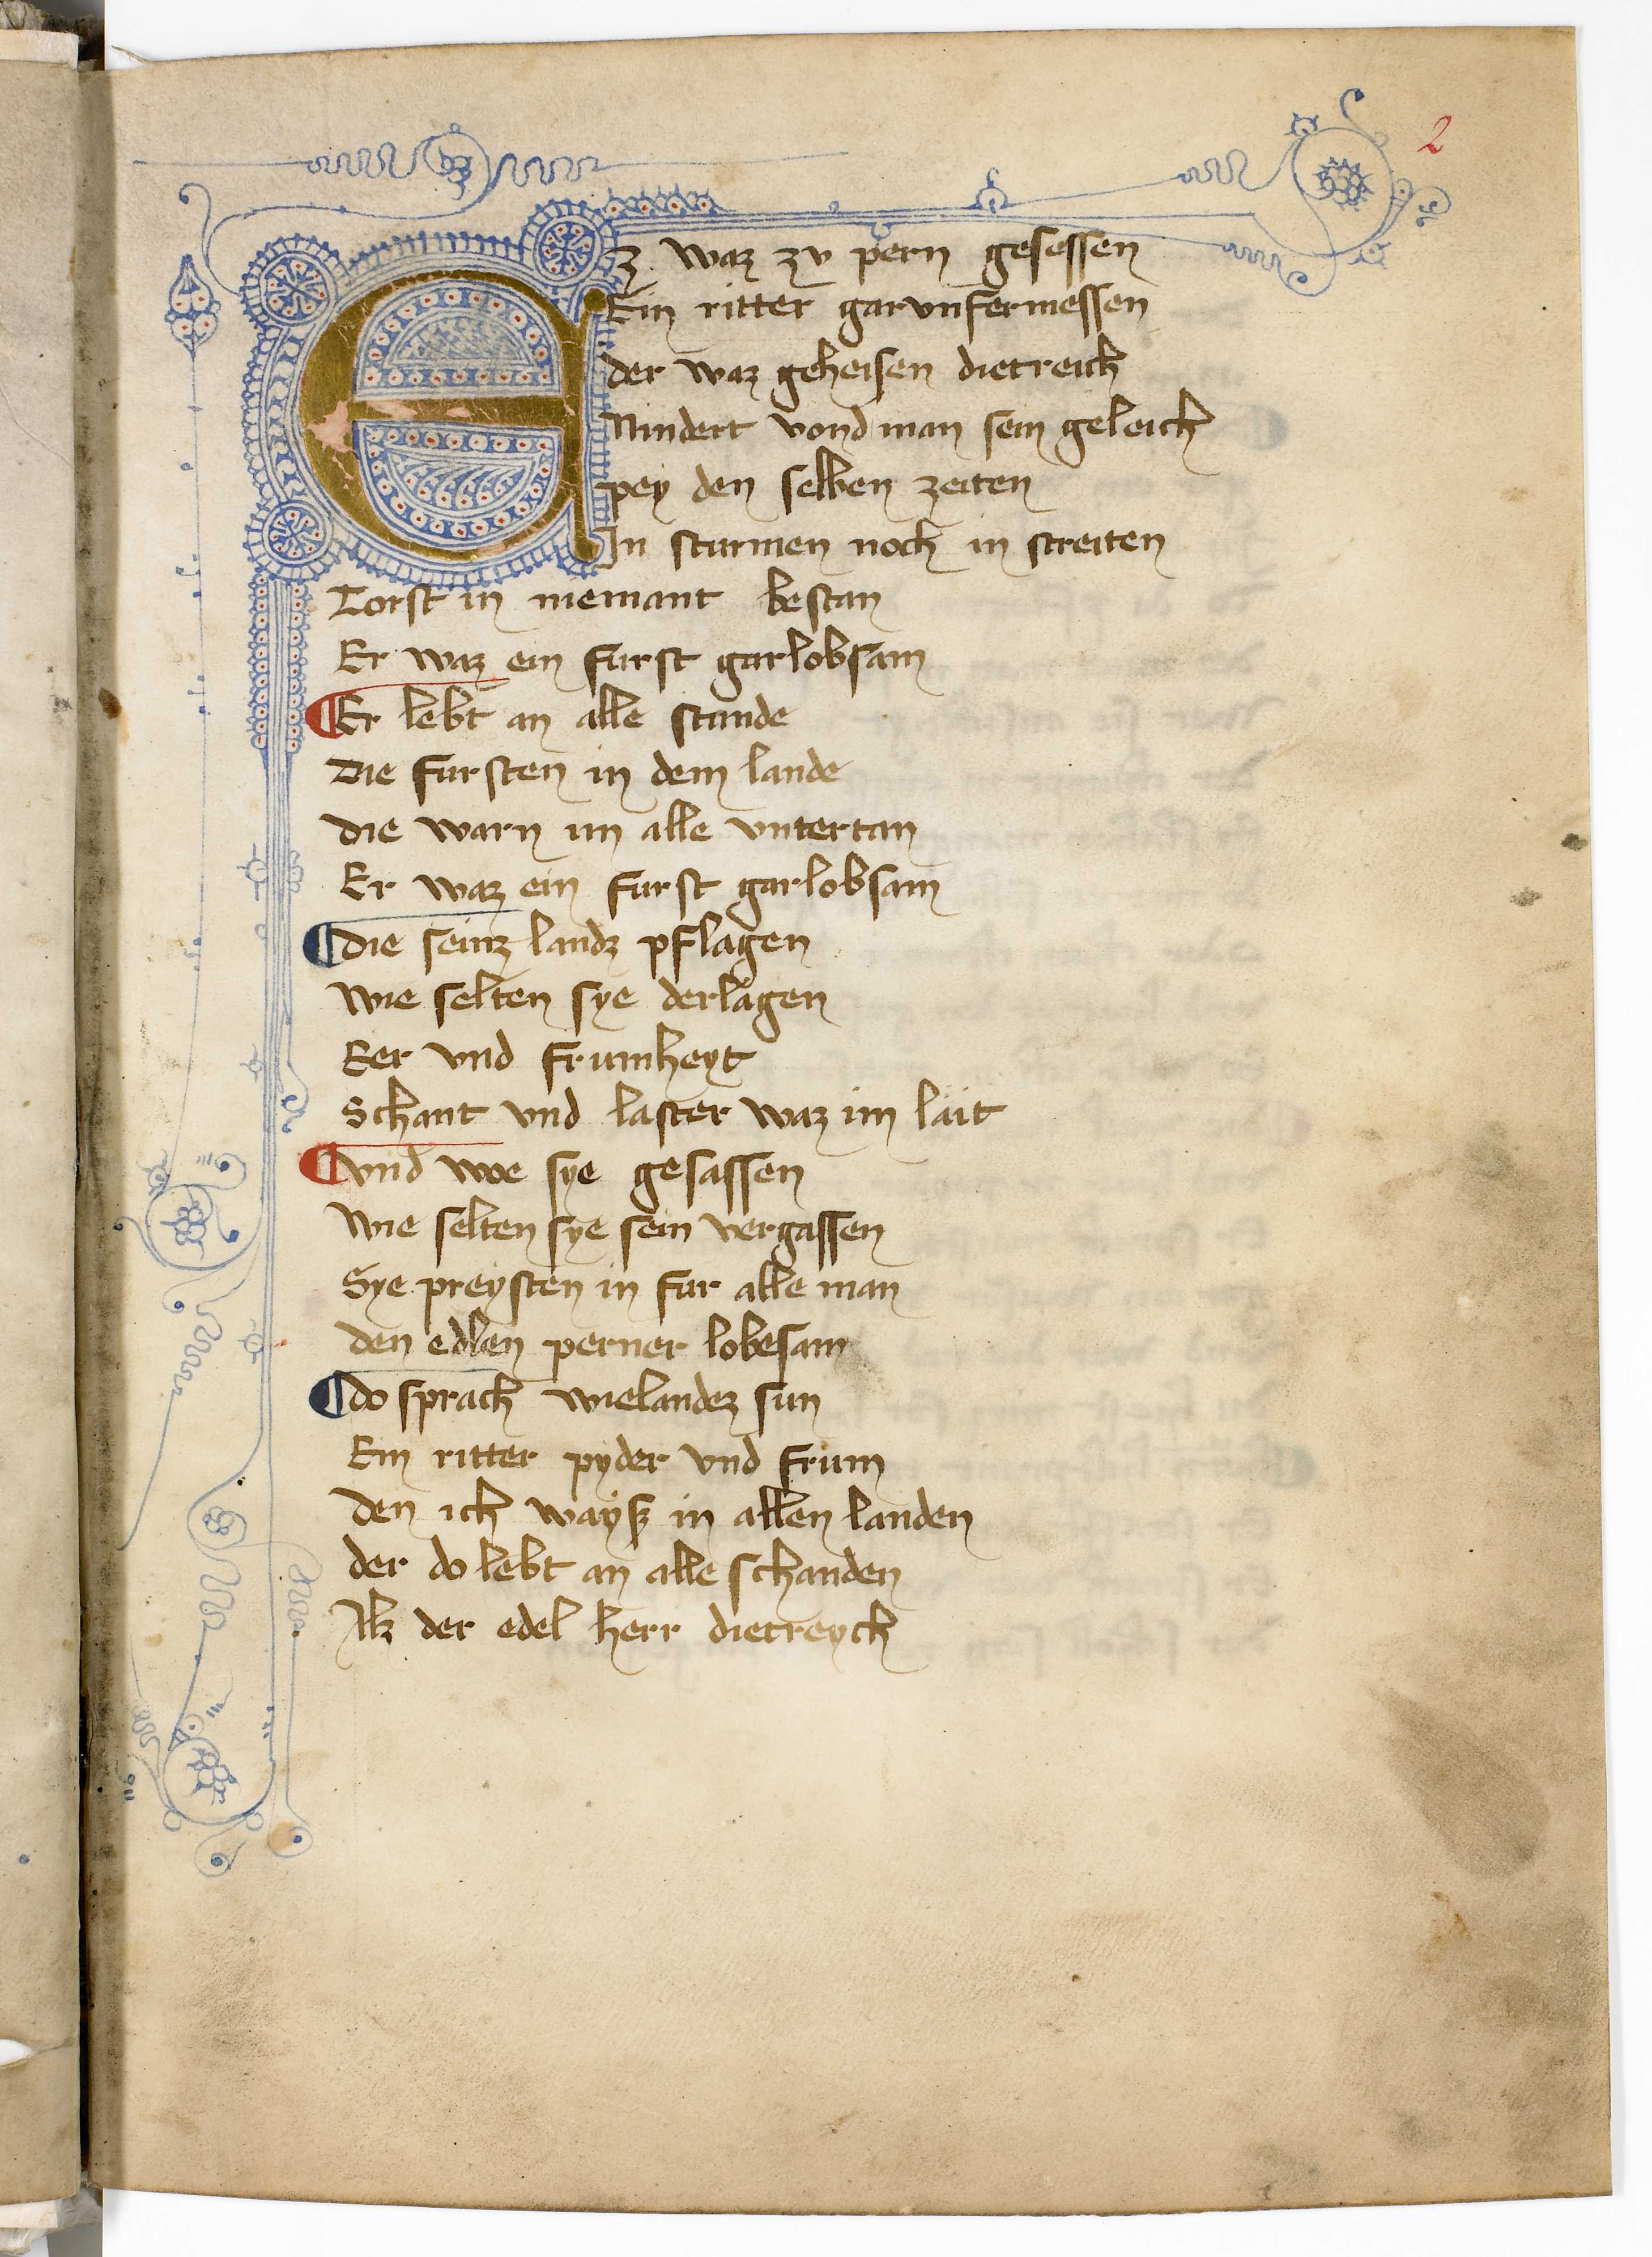 2
Ez waz zv pern gesessen
Ein ritter gar vnfermessen
der waz geheisen dietreich
Nindert vond man sein geleich
pey den selben zeiten
In sturmen noch in streiten
Torst in niemant bestan
Er waz ein furst gar lobsam
¶ Er lebt an alle stunde
Die fursten in dem lande
die warn im alle vntertan
Er waz ein furst gar lobsam
¶ die seinz landz pflagen
Wie selten sye derlagen
Eer vnd frumheyt
Schant vnd laster waz im läit
¶ vnd woe sye gesassen
Wie selten sye sein vergassen
Sye preysten in fur alle man
den edlen perner lobesam
¶ do sprach wielandez sun
Ein ritter pyder vnd frum
den ich wayß in allen landen
der do lebt an alle schanden
Alz der edel herr dietreych